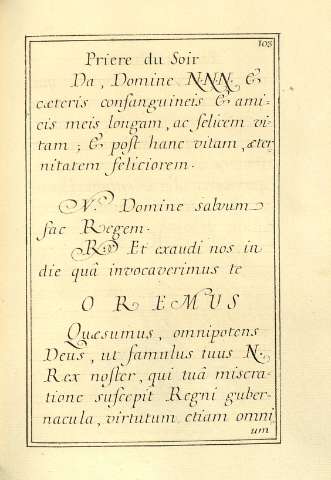 103
Priere du Soir
Da, Domine N.N.N. &
cæteris consanguineis & ami-
cis meis longam, ac felicem vi-
tam; & post hanc vitam, æter-
nitatem feliciorem.
V. Domine salvum
fac Regem.
R. Et exaudi nos in
die quâ invocaverimus te
OREMUS
Quæsumus, omnipotens
Deus, ut famulus tuus N.
Rex noster, qui tuâ misera-
tione suscepit Regni guber-
nacula, virtutum etiam omni
um